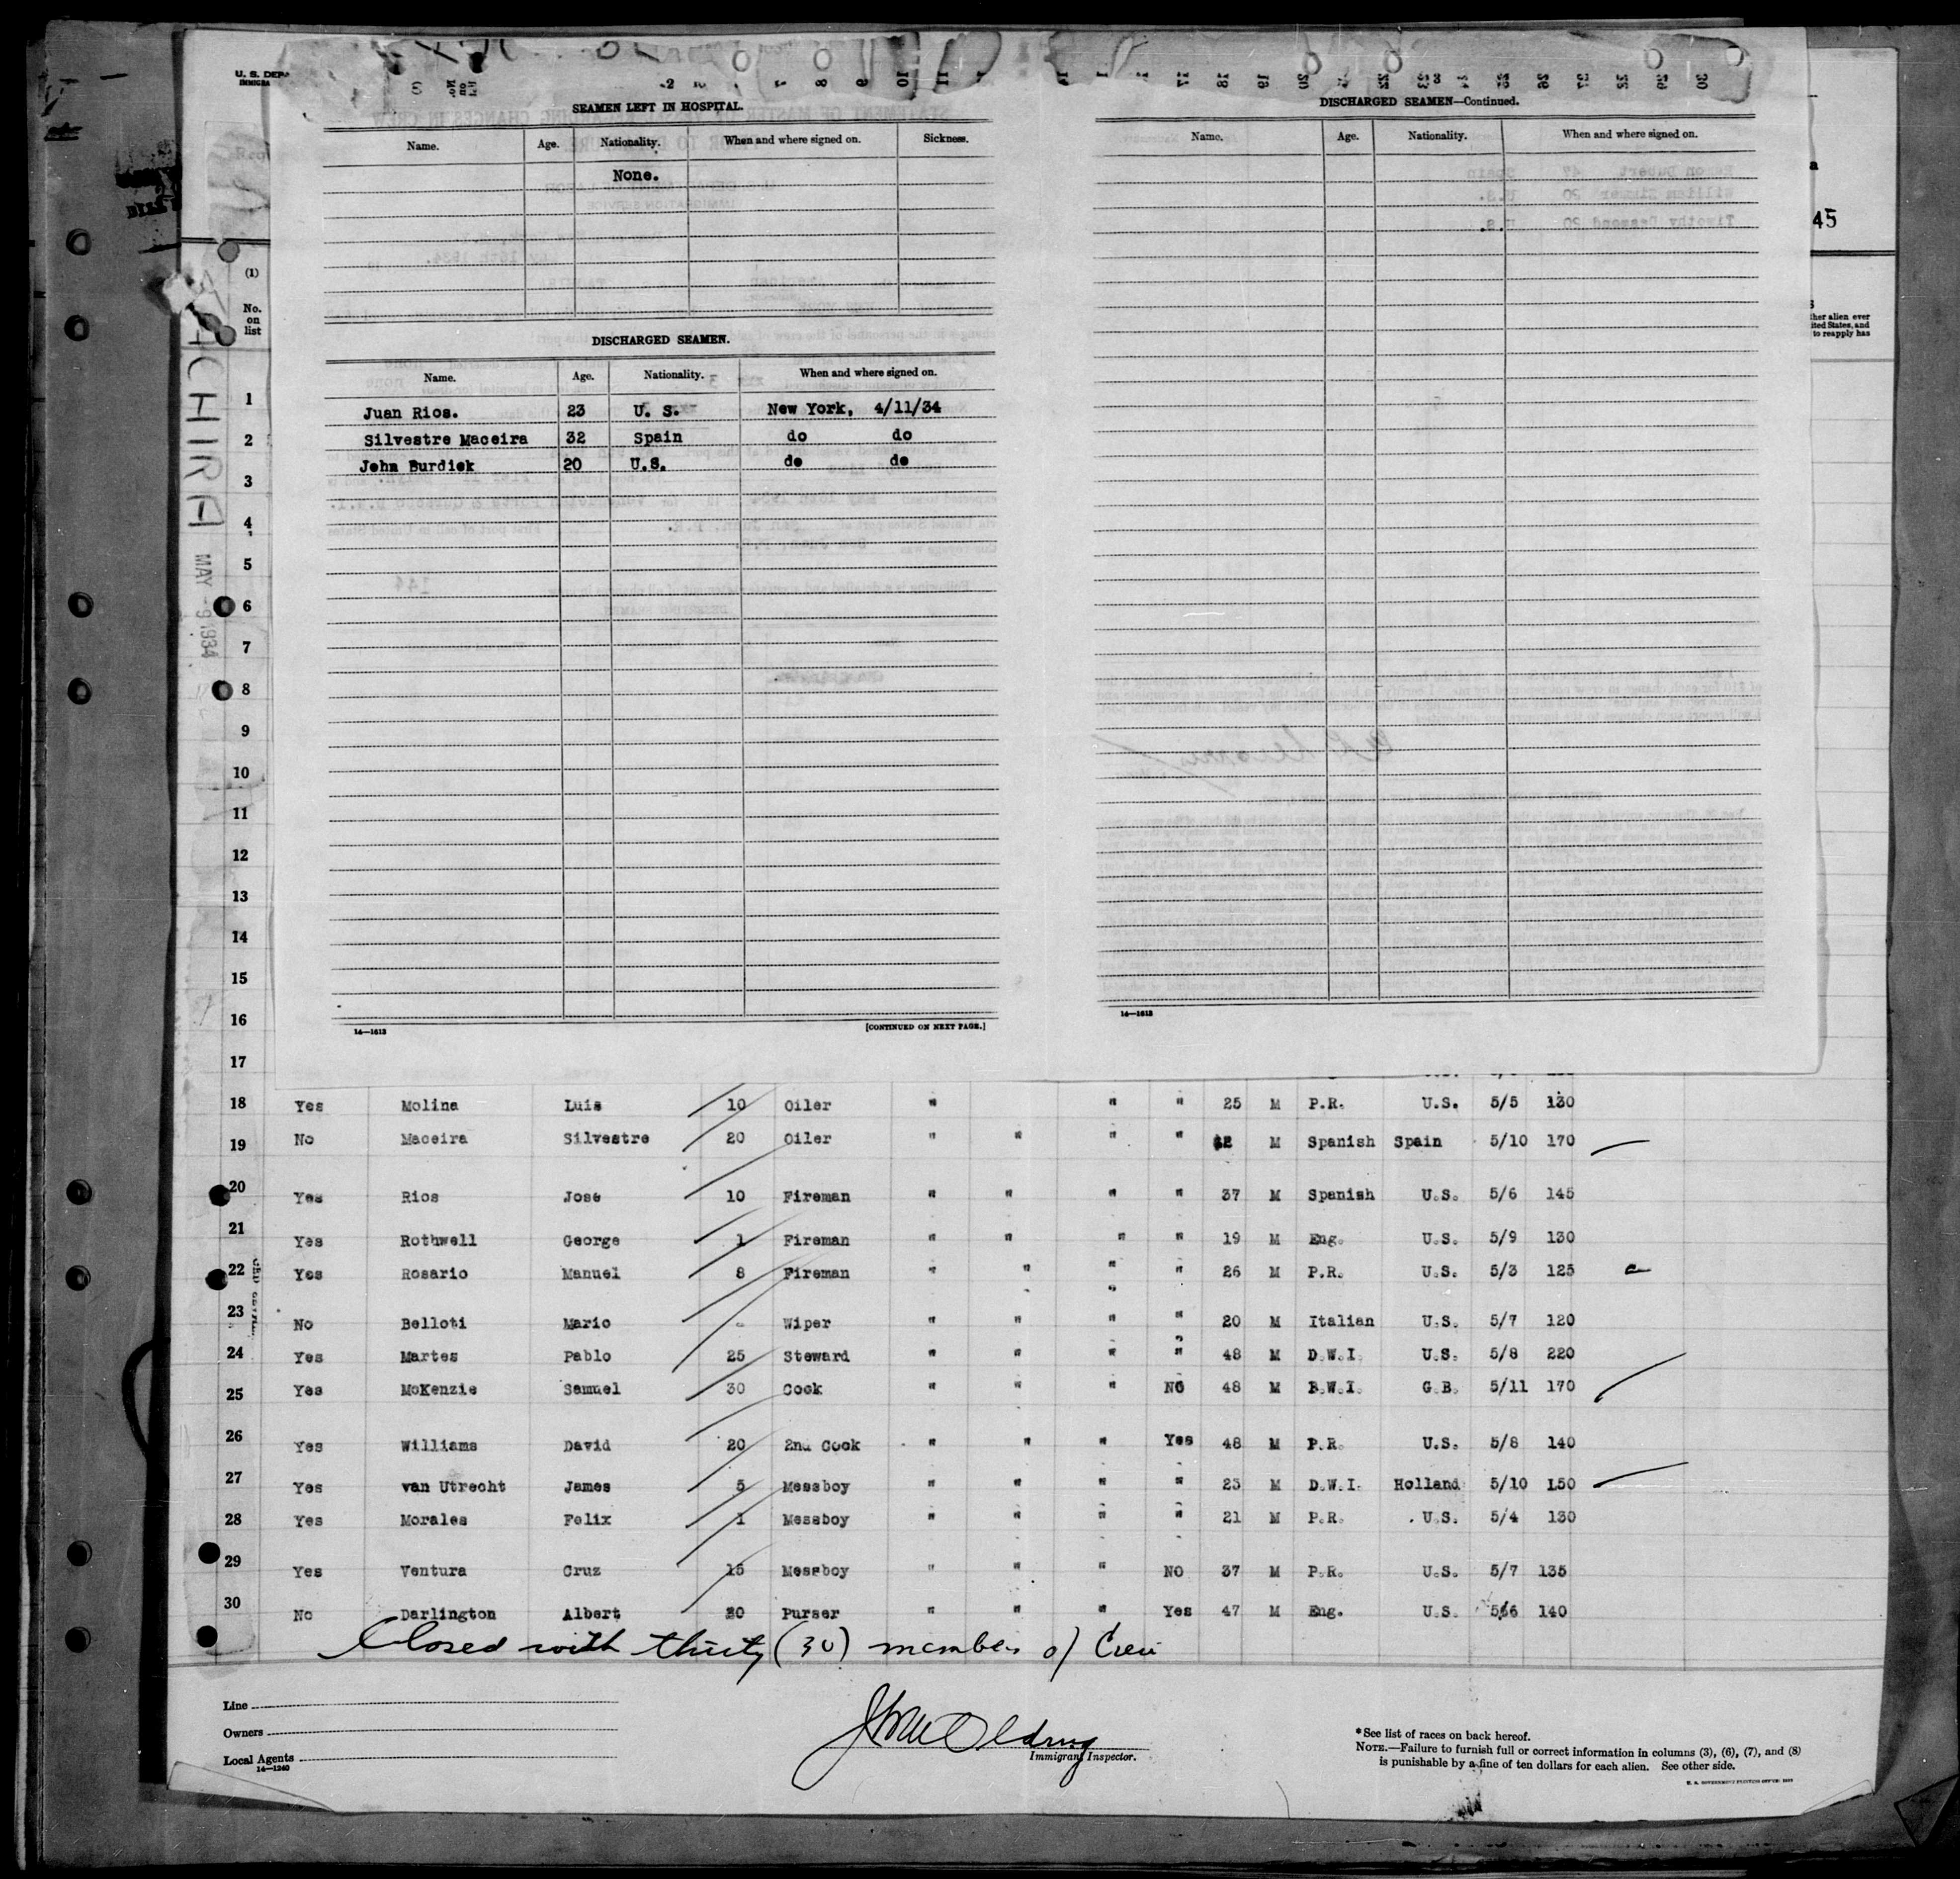 U. S. DEPA
SEAMEN LEFT IN HOSPITAL.
Name. Age. Nationality. When and where signed on. Sickness.
None.
DISCHARGED SEAMEN.
Name. Age. Nationality. When and where signed on.
Juan Rios. 23 U. S. New York, 4/11/34
Silvestre Maceira 32 Spain do do
John Burdick 20 U.S. do do
14—1613 [CONTINUED ON NEXT PAGE.]
DISCHARGED SEAMEN—Continued.
Name. Age. Nationality. When and where signed on.
14—1613
45
her alien ever
ited States, and
to reapply has
(1)
No.
on
list
ACHIRA
MAY - 9 1934
1
2
3
4
5
6
7
8
9
10
11
12
13
14
15
16
17
18 Yes Molina Luis 10 Oiler " " " 25 M P.R. U.S. 5/5 130
19 No Maceira Silvestre 20 Oiler " " " " M Spanish Spain 5/10 170
20 Yes Rios Jose 10 Fireman " " " " 37 M Spanish U.S. 5/6 145
21 Yes Rothwell George 1 Fireman " " " " 19 M Eng. U.S. 5/9 130
22 Yes Rosario Manuel 8 Fireman " " " " 26 M P.R. U.S. 5/3 125
23 No Belloti Mario - Wiper " " " " 20 M Italian U.S. 5/7 120
24 Yes Martes Pablo 25 Steward " " " " 48 M D.W.I. U.S. 5/8 220
25 Yes McKenzie Samuel 30 Cook " " " NO 48 M B.W.I. G.B. 5/11 170
26 Yes Williams David 20 2nd Cook " " " Yes 48 M P.R. U.S. 5/8 140
27 Yes van Utrecht James 5 Messboy " " " " 23 M D.W.I. Holland 5/10 150
28 Yes Morales Felix 1 Messboy " " " " 21 M P.R. U.S. 5/4 130
29 Yes Ventura Cruz 15 Messboy " " " NO 37 M P.R. U.S. 5/7 135
30 No Darlington Albert 20 Purser " " " Yes 47 M Eng. U.S. 5/6 140
Closed with thirty (30) members of Crew
Line
Owners
Local Agents
14—1240
Immigrant Inspector.
*See list of races on back hereof.
NOTE.—Failure to furnish full or correct information in columns (3), (6), (7), and (8)
is punishable by a fine of ten dollars for each alien. See other side.